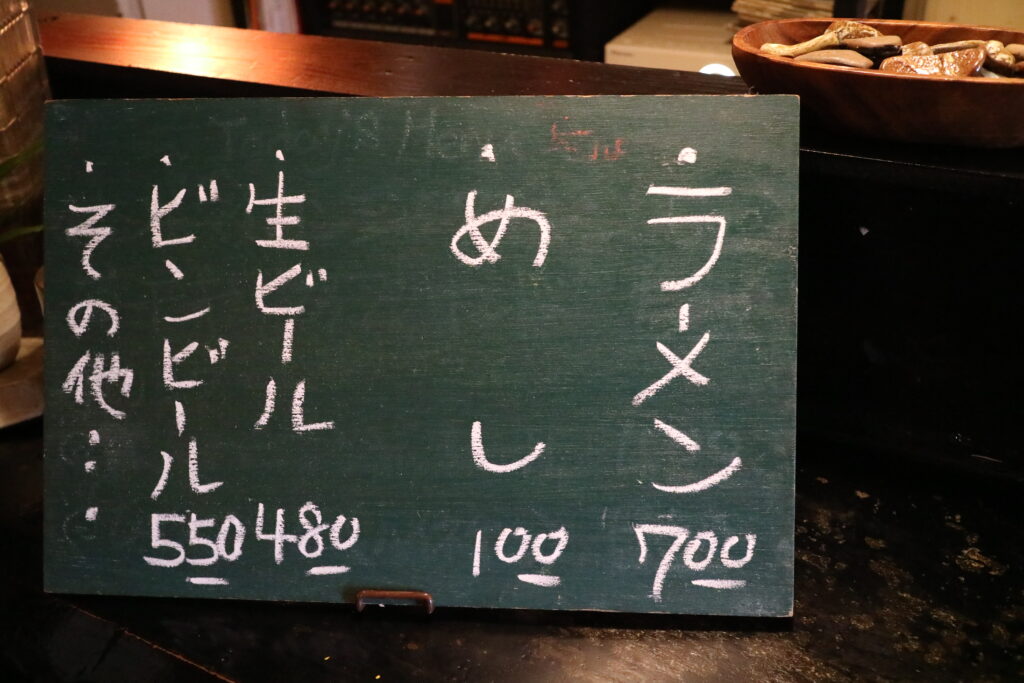 ・ラーメン 700
・めし 100
・生ビール 480
・ビンビール 550
・その他・・・